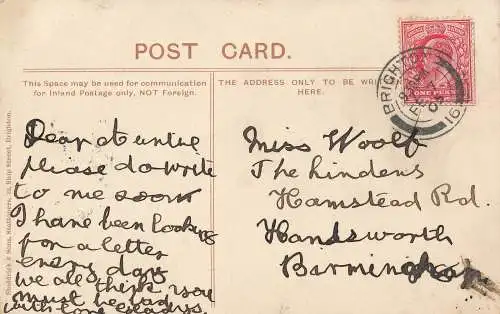 POST CARD.
This Space may be used for communication
for Inland Postage only, NOT Foreign.
THE ADDRESS ONLY TO BE WRI
HERE.
BRIGHTO
ONE PENNY
Dear Auntie
please do write
to me soon
I have been looking
for a letter
every day
we all think you
must be
with love
Miss Woolf
The Lindens
Hamstead Rd.
Handsworth
Birmingham
& Sons, Stationers, Ship Street, Brighton.